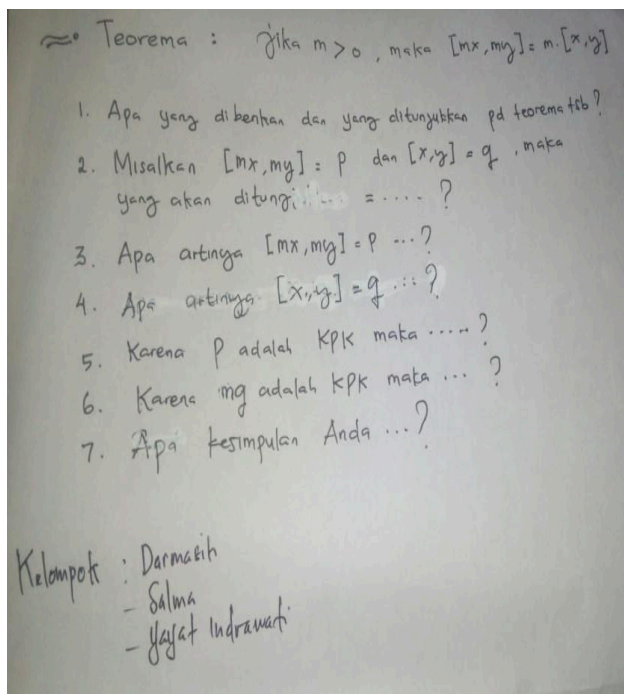 Teorema : jika m > 0 , maka [mx, my] = m. [x,y]
1. Apa yang diberikan dan yang ditunjukkan pd teorema tsb?
2. Misalkan [mx, my] = P dan [x,y] = q , maka
yang akan ditunj... = .... ?
3. Apa artinya [mx, my] = P ...?
4. Apa artinya [x,y] = q ...?
5. Karena P adalah KPK maka .....?
6. Karena mq adalah KPK maka ... ?
7. Apa kesimpulan Anda ...?
Kelompok : Darmasih
- Salma
- Yayat Indrawati